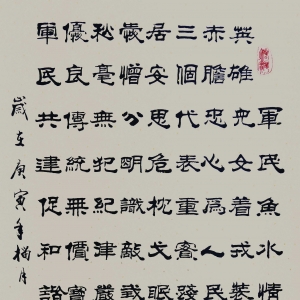 軍民魚水情
英雄兒女着戎裝
赤膽忠心為人民
三個代表重實踐
居安思危枕戈眠
愛憎分明識敵我
秋毫無犯紀律嚴
優良傳統無價寶
軍民共建促和諧
歲在庚寅年月